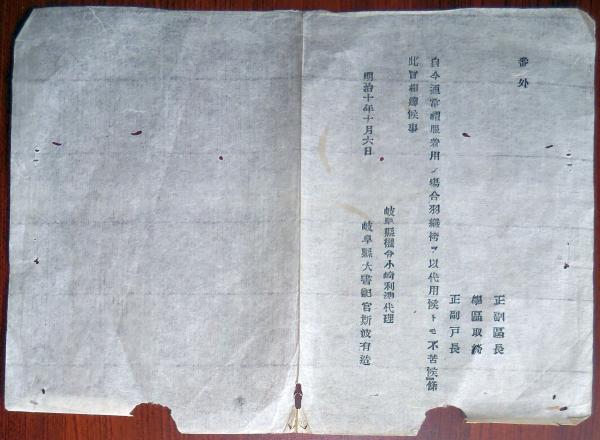 番外
正副區長
學區取締
正副戸長
自今通常禮服着用ノ場合羽織袴ヲ以代用候トモ不苦候條
此旨相達候事
明治十年十月六日
岐阜縣權令小崎利準代理
岐阜縣大書記官斯波有造